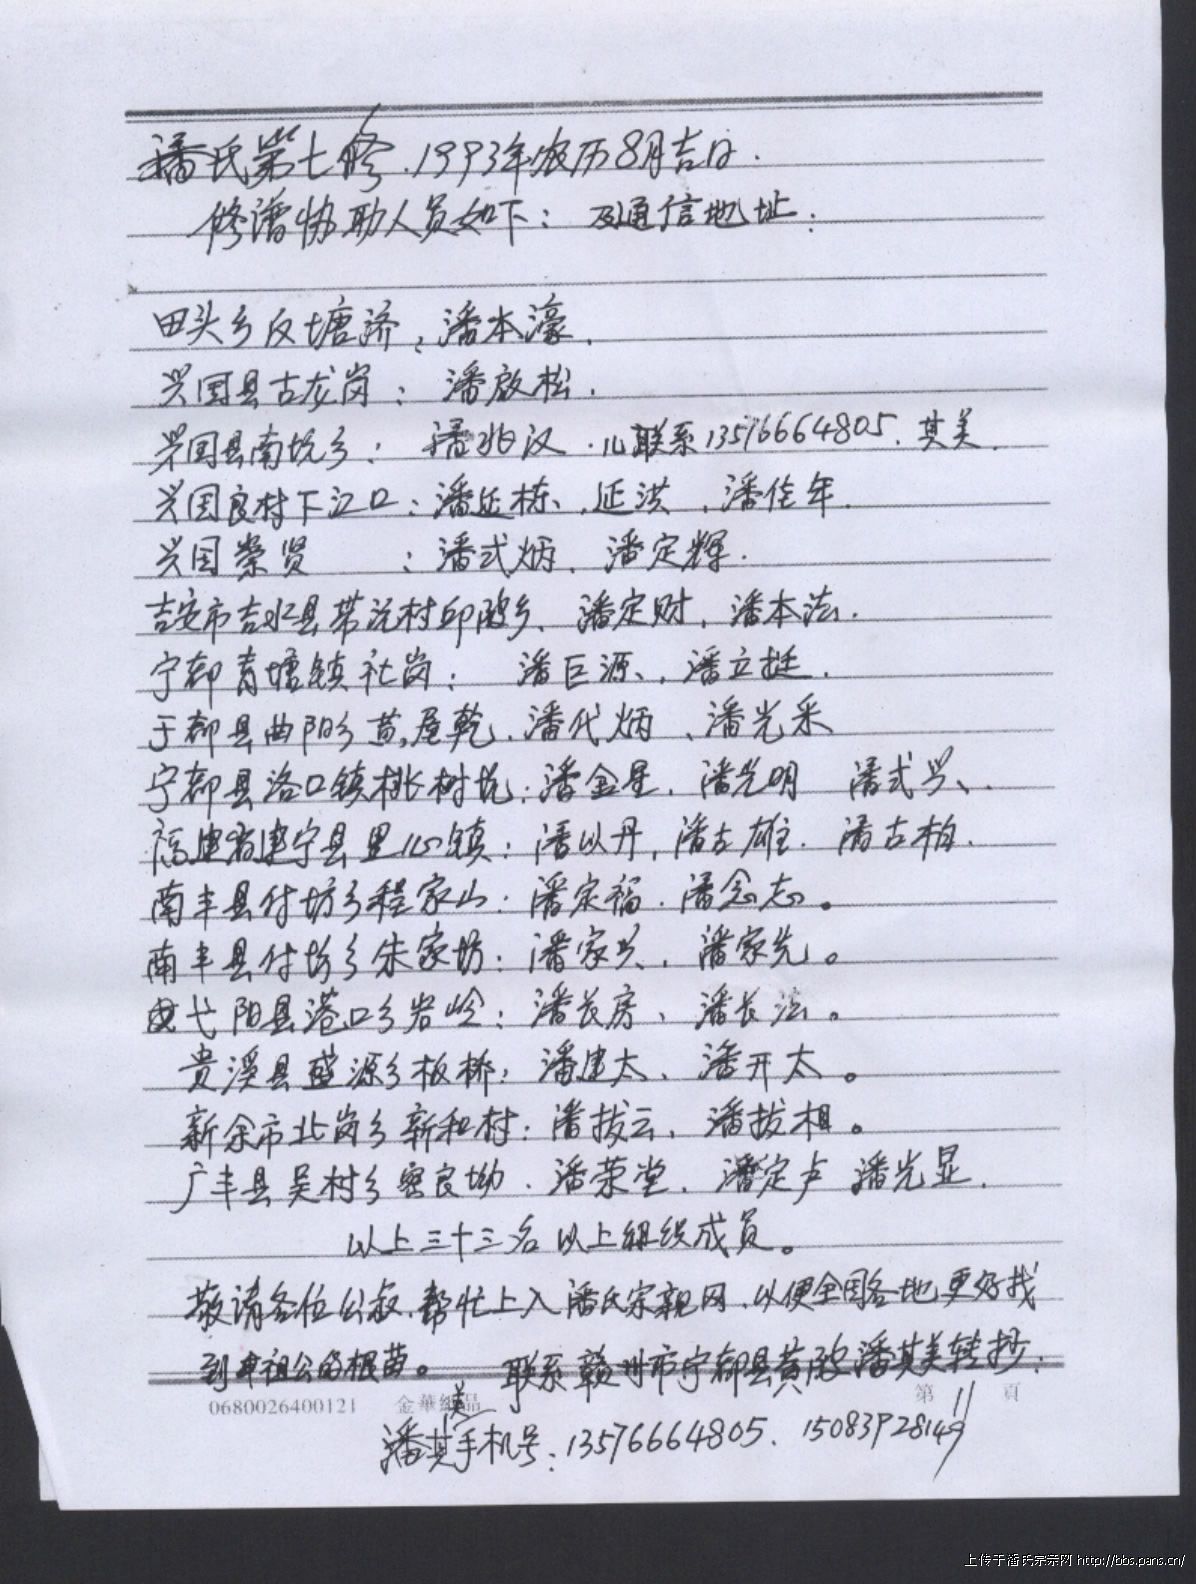 潘氏第七修.1993年农历8月吉日.
修谱协助人员如下：及通信地址：
田头乡反塘济：潘本濠.
兴国县古龙岗：潘啟松.
兴国县南坑乡：潘兆汉.儿联系13576664805.其美.
兴国良村下江口：潘延栋、延洪、潘佳年.
兴国崇贤：潘式炳、潘定辉.
吉安市吉水县带沅村邱陂乡、潘定财，潘本法.
宁都青塘镇社岗：潘巨源、潘立挺.
于都县曲阳乡黄屋乾、潘代炳、潘光采
宁都县洛口镇桃树坑：潘金星，潘光明 潘式兴、
福建省建宁县里心镇：潘以丹，潘古雄.潘古柏.
南丰县付坊乡程家山：潘定福.潘念志。
南丰县付坊乡朱家坊：潘家兴，潘家先。
弋阳县港口乡岩岭：潘长房、潘长法。
贵溪县盛源乡板桥：潘建太、潘开太。
新余市北岗乡新和村：潘拔云、潘拔相。
广丰县吴村乡密良坳.潘荣堂.潘定卢 潘光显.
以上三十三名以上组织成员。
敬请各位公叔.帮忙上入潘氏宗親网.以便全国各地更好找
到祖公的根苗。联系赣州市宁都县黄陂潘其美转抄：
0680026400121 金華紙品 第11頁
潘其美手机号：13576664805. 15083928149
上传于潘氏宗亲网 http://bbs.pans.cn/